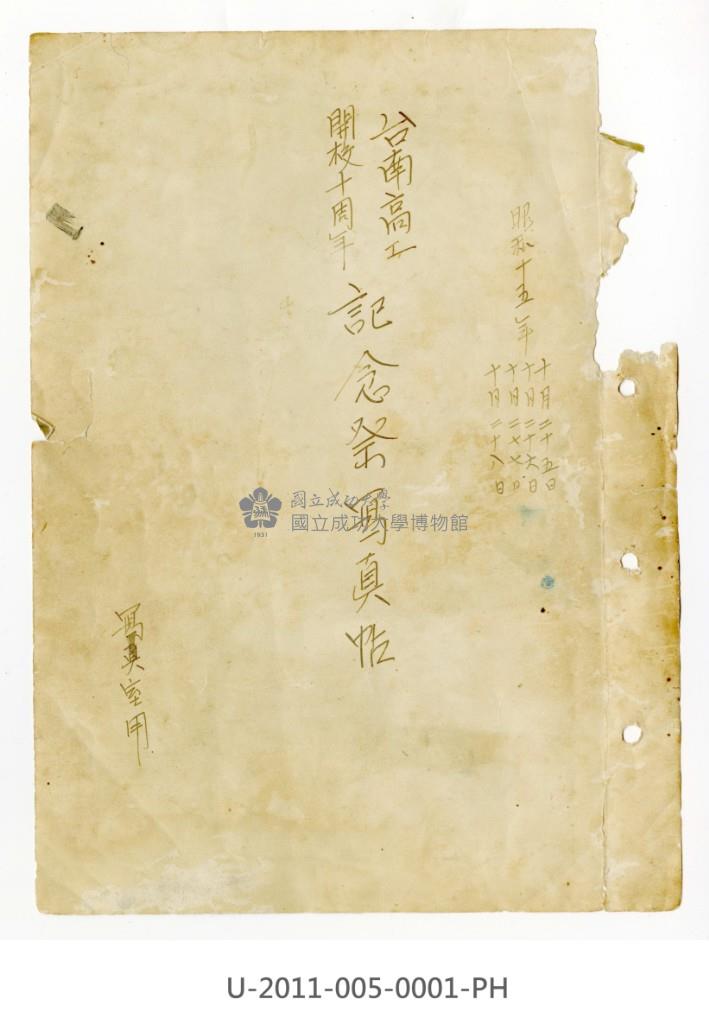 昭和十五年
十月二十五日
十月二十六日
十月二十七日
十月二十八日
台南高工
開校十周年
記念祭寫真帖
寫真室用
國立成功大學
國立成功大學博物館
1931
U-2011-005-0001-PH